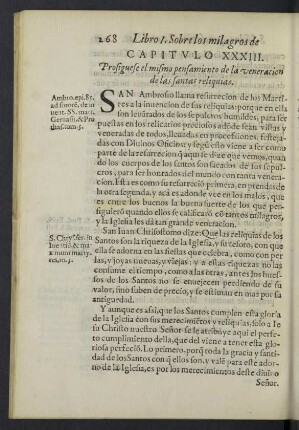 268 Libro I. Sobre los milagros de
CAPITVLO XXXIII.
Prosiguese el mismo pensamiento de la veneracion
de las santas reliquias.
Ambro. epi. 85.
ad sororē, de in
uent. SS. mart.
Geruasij & Pro
SAN Ambrosio llama resurreccion de los Marti-
res a la inuencion de sus reliquias: porque en ella
son leuantados de sepulcros humildes, para ser
puestas en relicarios preciosos adōde seā vistas y
veneradas de todos, lleuadas en processiones, festeja-
das con Diuinos Oficios; y segū esto viene a ser como
parte de la resurreccion q aqui le dizen que vamos, quā
do los cuerpos de los santos son sacados de los sepul-
cros humildes, para ser honrados con tanta veneraci-
on. Esta es como su resurreciō primera, en prendas de
la otra segunda y eterna, y es adonde vee en los males, que
es entre los buenos la buena suerte de los que
quando floreciendo ellos se calificarō cō tantos milagros, y
la Iglesia les dà tan grande veneracion.
S. Chrysost. in
Iuentiū & ma
ximum marty.
to. 3.
San Iuan Chrisostomo dize: Que las reliquias de los
Santos son la riqueza de la Iglesia, y su tesoro, con q ella
sale en adorno en las fiestas que celebra, como con per-
las, y joyas nueuas, y viejas; y estas riquezas no las
consume el tiempo, como a las otras, antes los hues-
sos de los Santos no se enuejecen perdiendo de su
valor, sino saben de precio, y se estiman mas por su
antiguedad.
Y aunque es assi, que los Santos cumplen esta glo-
ria de la Iglesia con sus merecimientos y reliquias, solo a Ie
su Christo nuestro Señor se le atribuye aqui el per-
fecto cumplimiento della, que del viene a tener esta glo-
riosa perfeciō. Lo primero, porq toda la gracia y santi-
dad de los Santos con q ellos son, y valē para este ador-
no de la Iglesia, es por los merecimientos deste diuino
Señor.